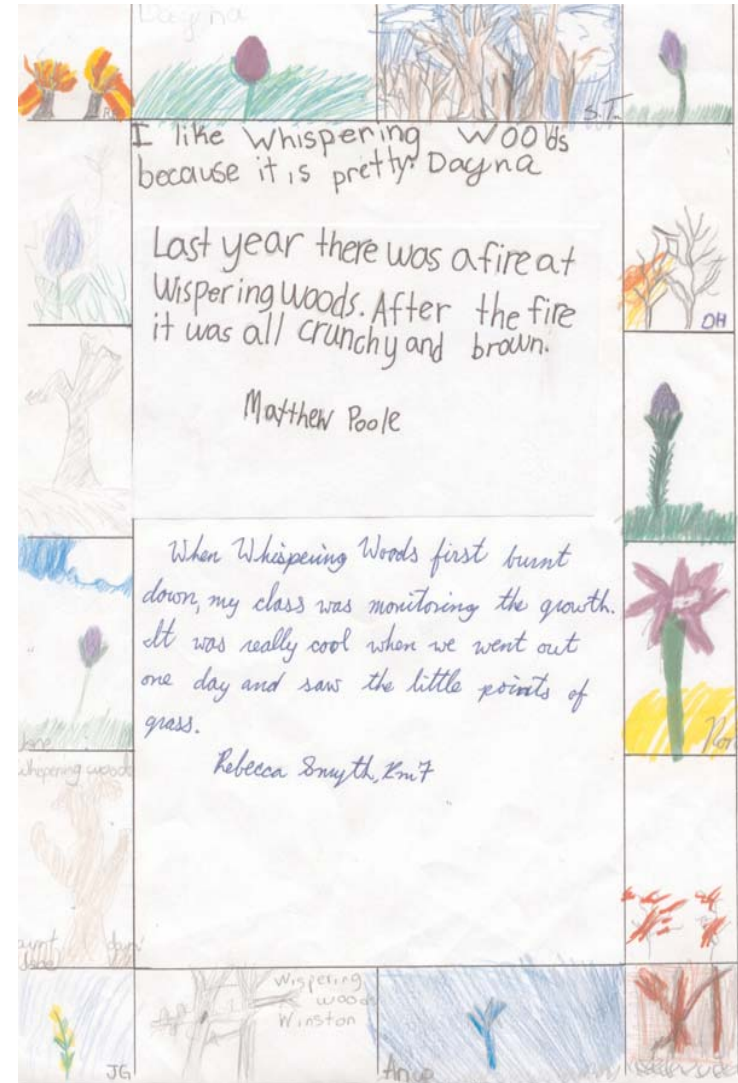 Dayna
S.T.
I like Whispering Woods
because it is pretty. Dayna
Last year there was a fire at
Wispering Woods. After the fire
it was all crunchy and brown.
Matthew Poole
DH
When Whispering Woods first burnt
down, my class was monitoring the growth.
It was really cool when we went out
one day and saw the little points of
grass.
Rebecca Smyth, Rm 7
whispering woods
burnt down
Wispering
woods
Winston
JG